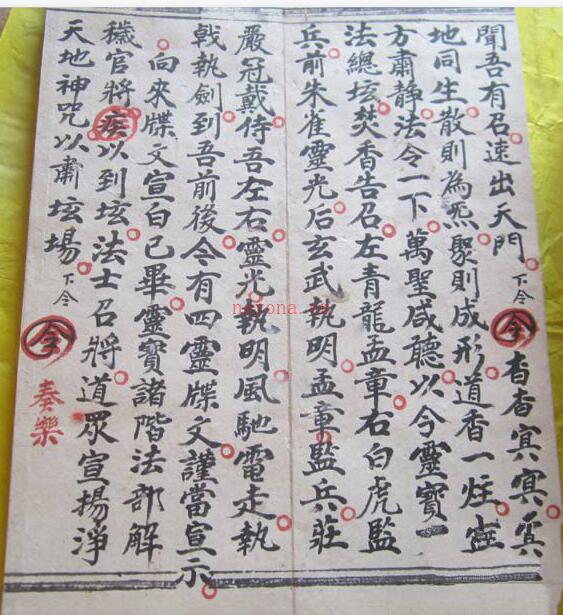 聞吾有召速出天門 下令 令 杳杳冥冥
地同生散則為炁聚則成形道香一炷
方肅靜法令一下萬聖咸聽以今靈寶一
法總壇焚香告召左青龍孟章右白虎監
兵前朱雀靈光后玄武執明孟章監兵莊
嚴冠戴侍吾左右靈光執明風馳電走執
戟執劍到吾前後令有四靈牒文謹當宣示
向來牒文宣白已畢靈寶諸階法部解
穢官將疾以到壇法士召將道眾宣揚淨
天地神咒以肅壇場 下令 令 奏樂